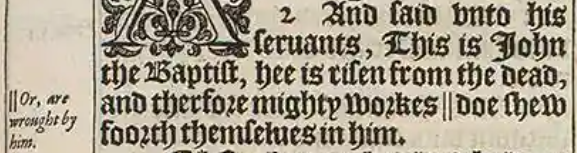 2 And said vnto his
seruants, This is John
the Baptist, hee is risen from the dead,
and therfore mighty workes || doe shew
foorth themselues in him.
|| Or, are
wrought by
him.